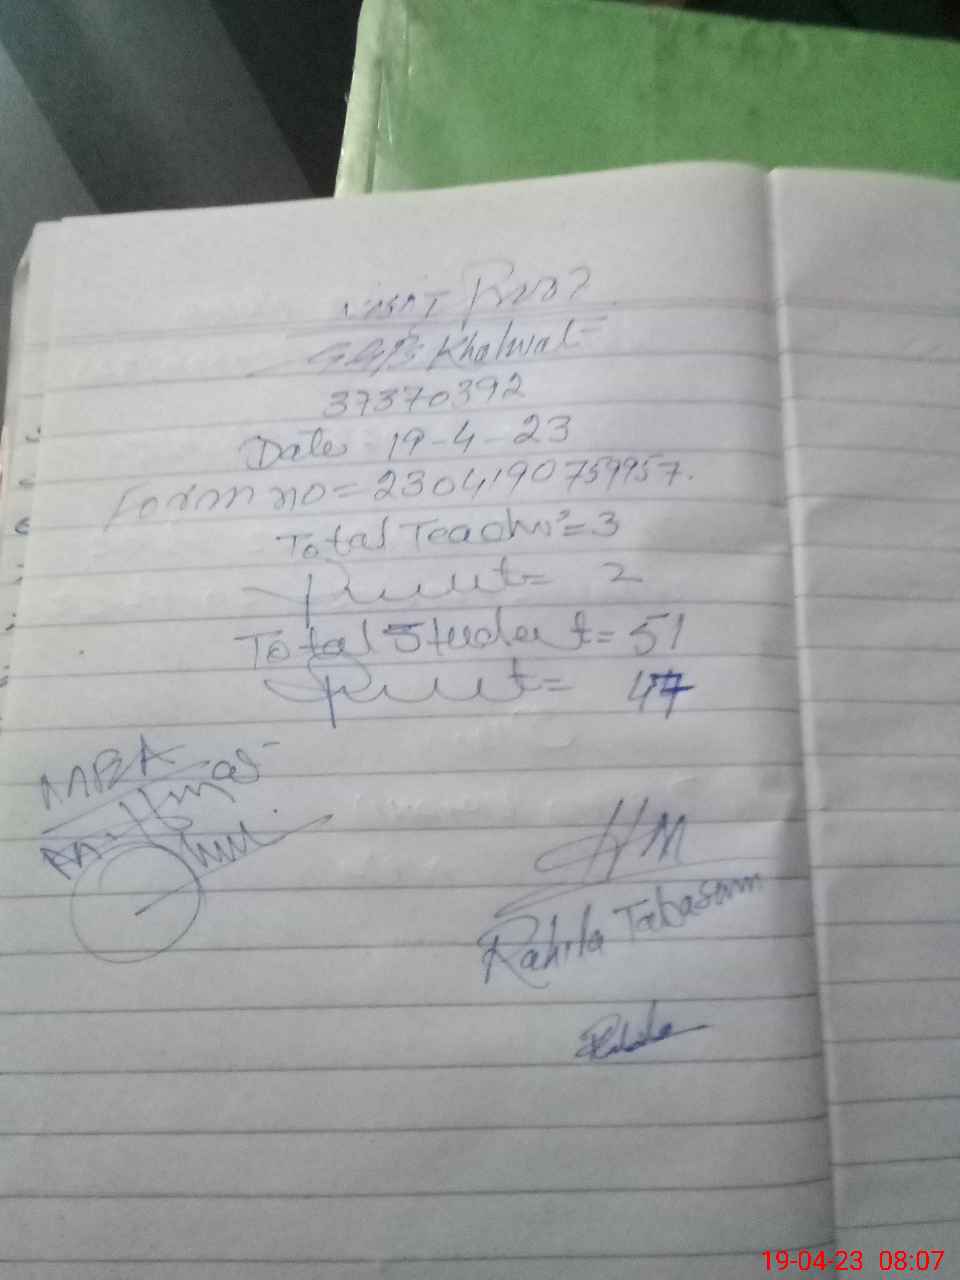 GGPS Khalwat
37370392
Date 19-4-23
Form no = 2304190759957.
Total Teacher = 3
Present = 2
Total Student = 51
Present = 47
MEA
HM
Rahila Tabasam
Rahila
19-04-23 08:07